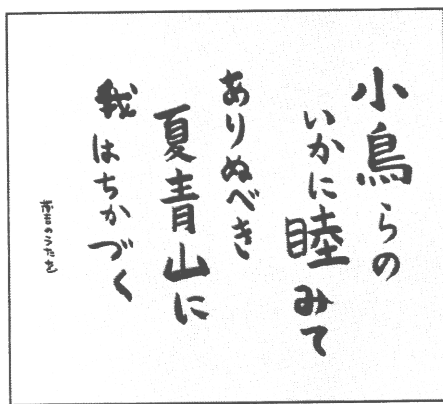 小鳥らの
いかに睦みて
ありぬべき
夏青山に
我はちかづく
茂吉のうたを